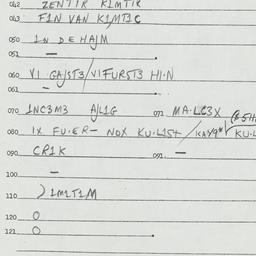 042 ZENTIR KIMTIK
043 FIN VAN KIMTIC
050 IN DE HAJM
051 —
060 VI GAJST3/VI FURST3 HI-N
061 —
070 INC3M3 AJLIG 071 MA-LC3X
080 IX FU.ER- NOX KU.LIST/
090 CRIK 091 —
100 —
110 )IMITIM
120 O
121 O